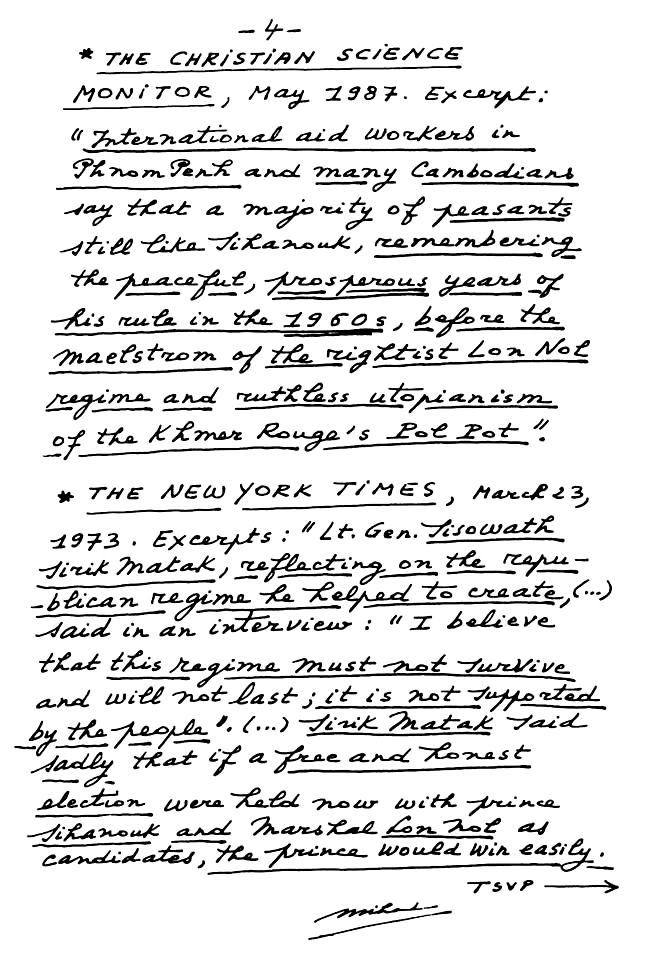 -4-
* THE CHRISTIAN SCIENCE
MONITOR, May 1987. Excerpt:
"International aid workers in
Phnom Penh and many Cambodians
say that a majority of peasants
still like Sihanouk, remembering
the peaceful, prosperous years of
his rule in the 1960s, before the
maelstrom of the rightist Lon Nol
regime and ruthless utopianism
of the Khmer Rouge's Pol Pot".
* THE NEW YORK TIMES, March 23,
1973. Excerpts: "Lt. Gen. Sisowath
Sirik Matak, reflecting on the repu-
-blican regime he helped to create, (...)
said in an interview: "I believe
that this regime must not survive
and will not last; it is not supported
by the people". (...) Sirik Matak said
sadly that if a free and honest
election were held now with prince
Sihanouk and Marshal Lon Nol as
candidates, the prince would win easily.
TSVP →